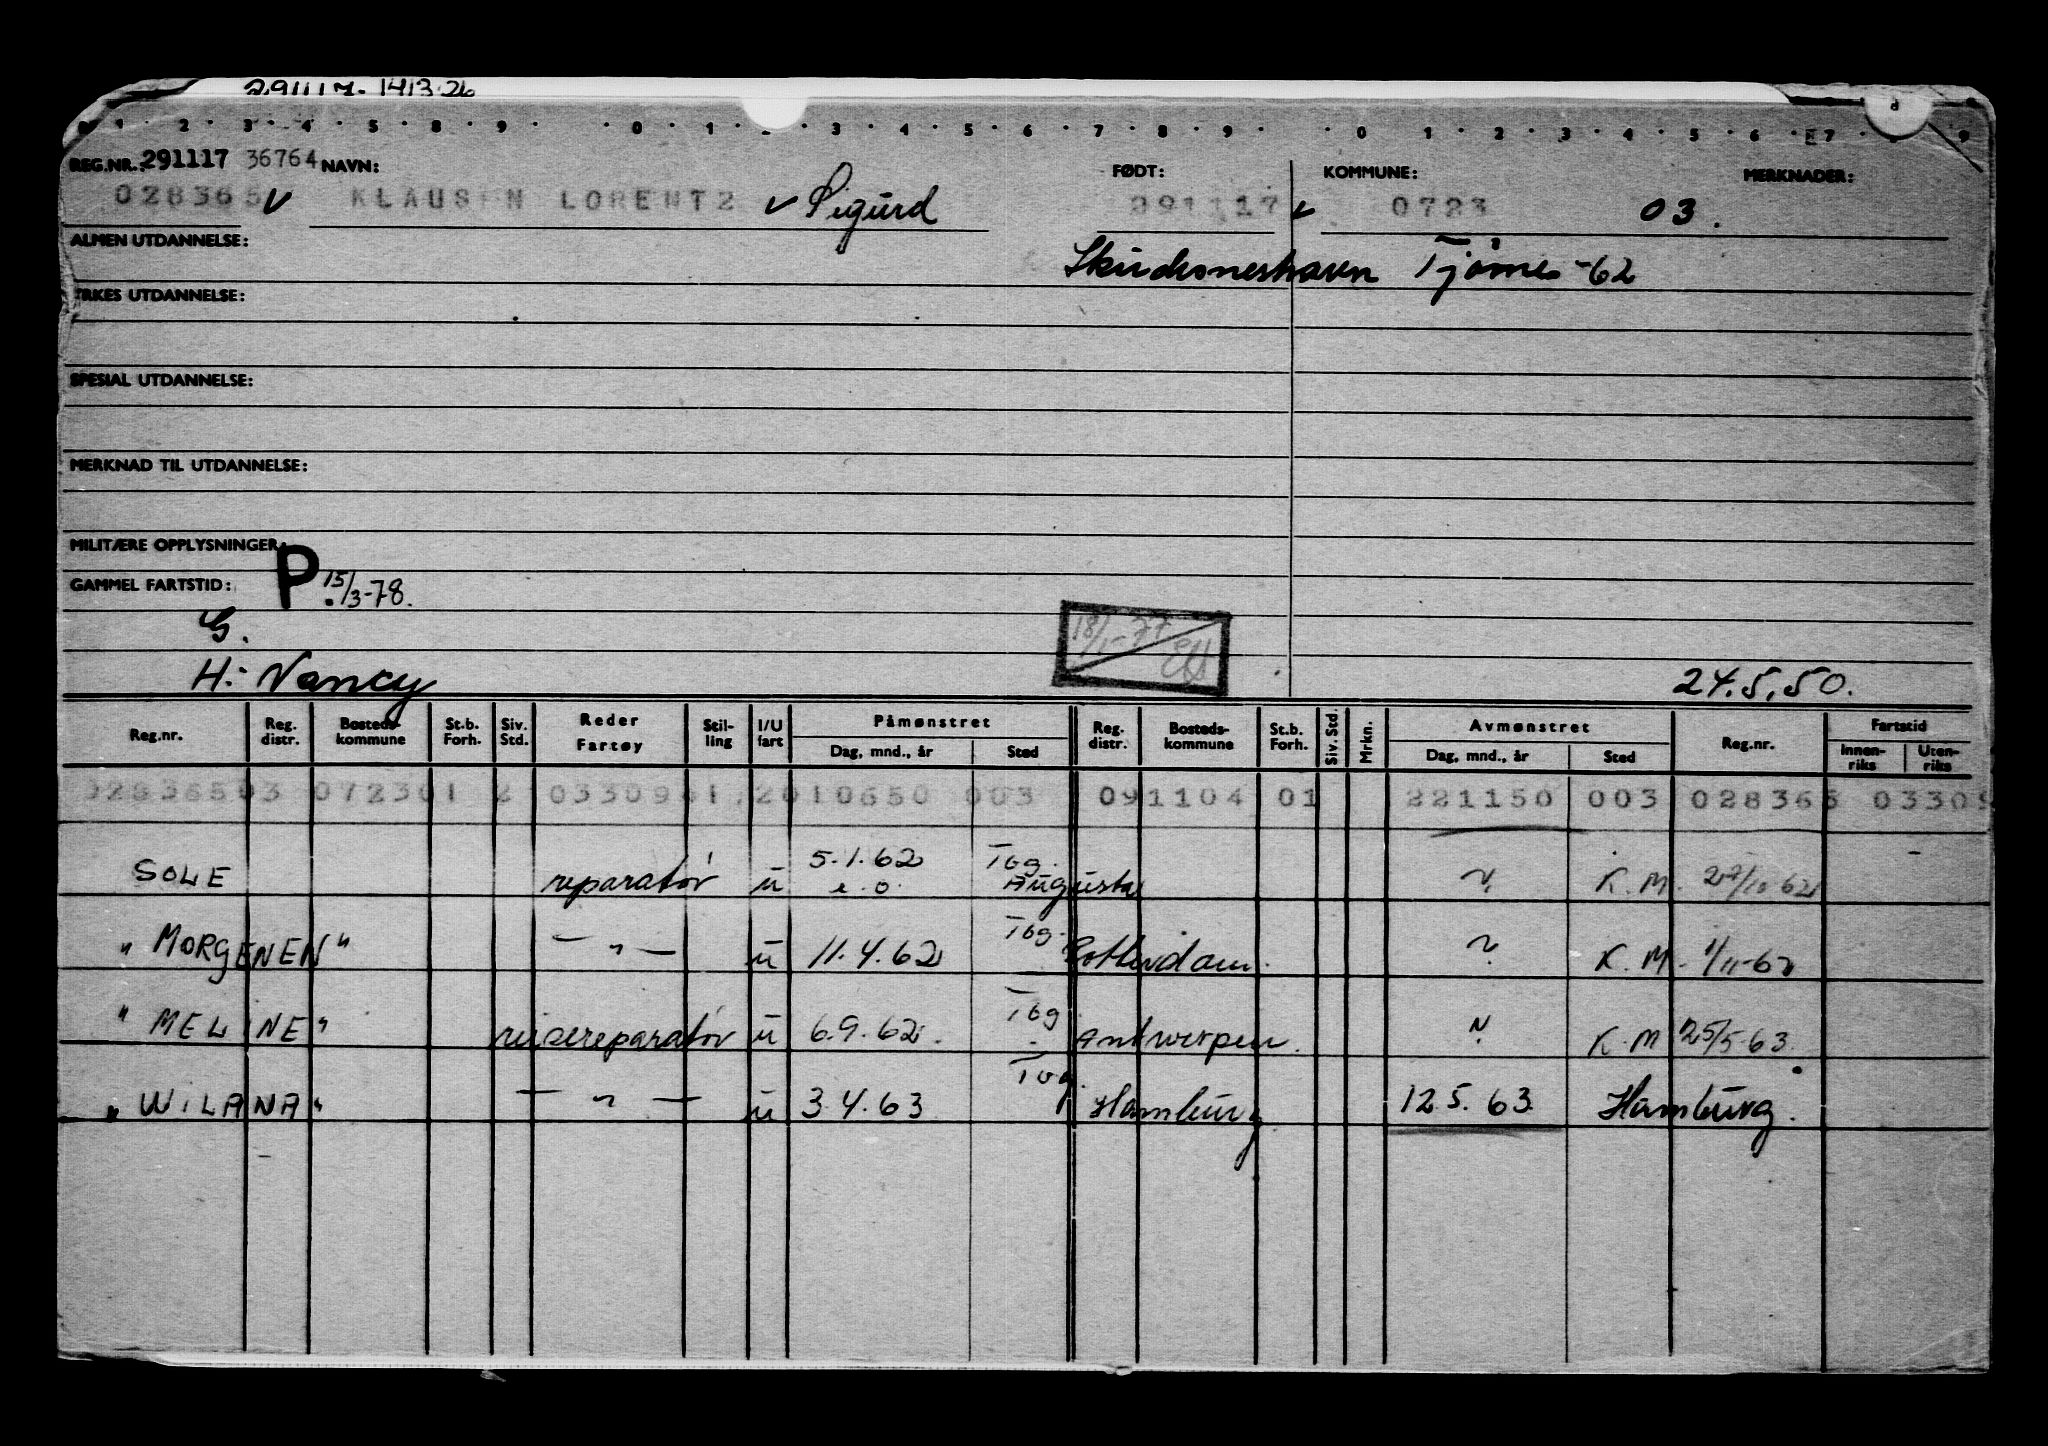 291117. 1413.26
1 · 2 · 3 · 4 · 5 · 8 · 9 · · 0 · 1 · 3 · 4 · 5 · 6 · 7 · 8 · 9 · · 0 · 1 · 2 · 3 · 4 · 5 · 6 · 7 · 9
REG.NR.: 291117 36764 NAVN: FØDT: KOMMUNE: MERKNADER:
028365 KLAUSEN LORENTZ Sigurd 291117 0723 03.
ALMEN UTDANNELSE: Skudesneshavn Tjøme -62
YRKES UTDANNELSE:
SPESIAL UTDANNELSE:
MERKNAD TIL UTDANNELSE:
MILITÆRE OPPLYSNINGER:
GAMMEL FARTSTID: P. 15/3-78.
G. 18/1-77
H: Nancy 24.5.50.
Reg.nr. Reg. distr. Bosteds-kommune St.b. Forh. Siv. Std. Reder Fartøy Stil-ling I/U fart Påmønstret Reg. distr. Bosteds-kommune St.b. Forh. Siv. Std. Mrkn. Avmønstret Reg.nr. Fartstid
Dag, mnd., år Sted Dag, mnd., år Sted Innen-riks Uten-riks
02836503 072301 2 0330961 2010650 003 091104 01 221150 003 028365 03309
SOLE reparatør u 5.1.62 e.o. Tbg. Augusta ? K.M. 29/10 62
" MORGENEN " — " — u 11.4.62 Tbg. Rotterdam. ? K.M. 1/11-62
" MELINE " reisereparatør u 6.9.62. Tbg. Antwerpen. ? K.M 25/5-63.
" WILANA " — " — u 3.4.63 Tbg. Hamburg 12.5.63. Hamburg.